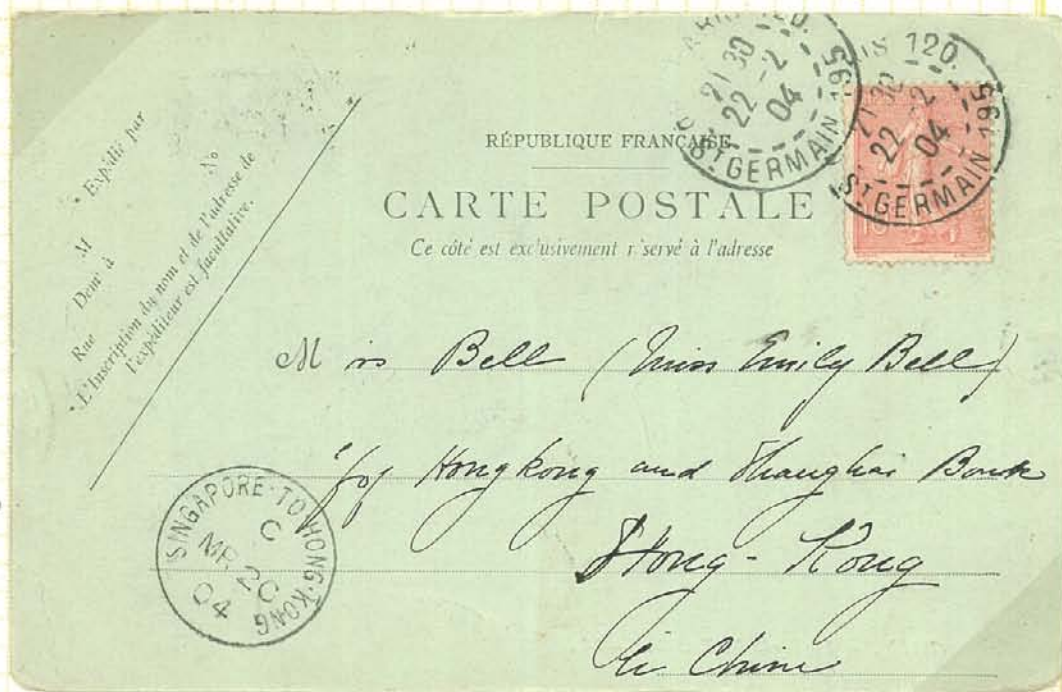 Expédié par
M
No
Demt à
Rue
L'Inscription du nom et de l'adresse de
l'expéditeur est facultative.
RÉPUBLIQUE FRANÇAISE
CARTE POSTALE
Ce côté est exclusivement réservé à l'adresse
IS 120.
21 30
22 - 2
04
ST GERMAIN 195
IS 120.
21 30
22 - 2
04
ST GERMAIN 195
10
Mrs Bell (Miss Emily Bell)
c/o Hongkong and Shanghai Bank
Hong-Kong
Chine
SINGAPORE · TO · HONG · KONG
C
MR 20
04